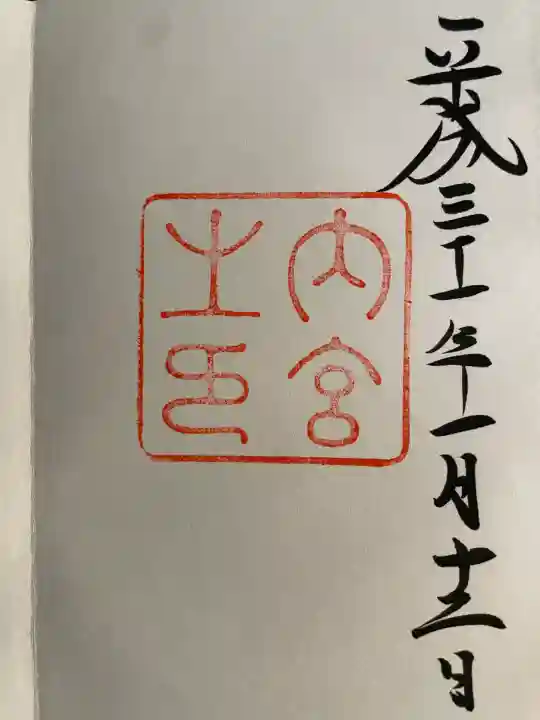 平成三十一年一月十三日
内宮
之印